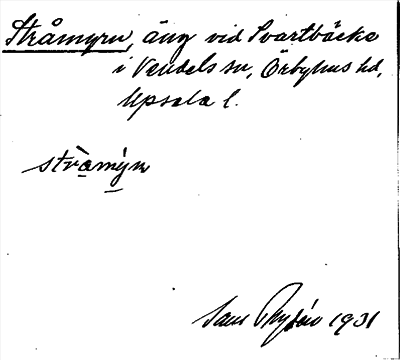 Stråmyrn, äng vid Svartbäcke
i Vendels sn, Örbyhus hd,
Upsala l.
stràmy̆n
1931